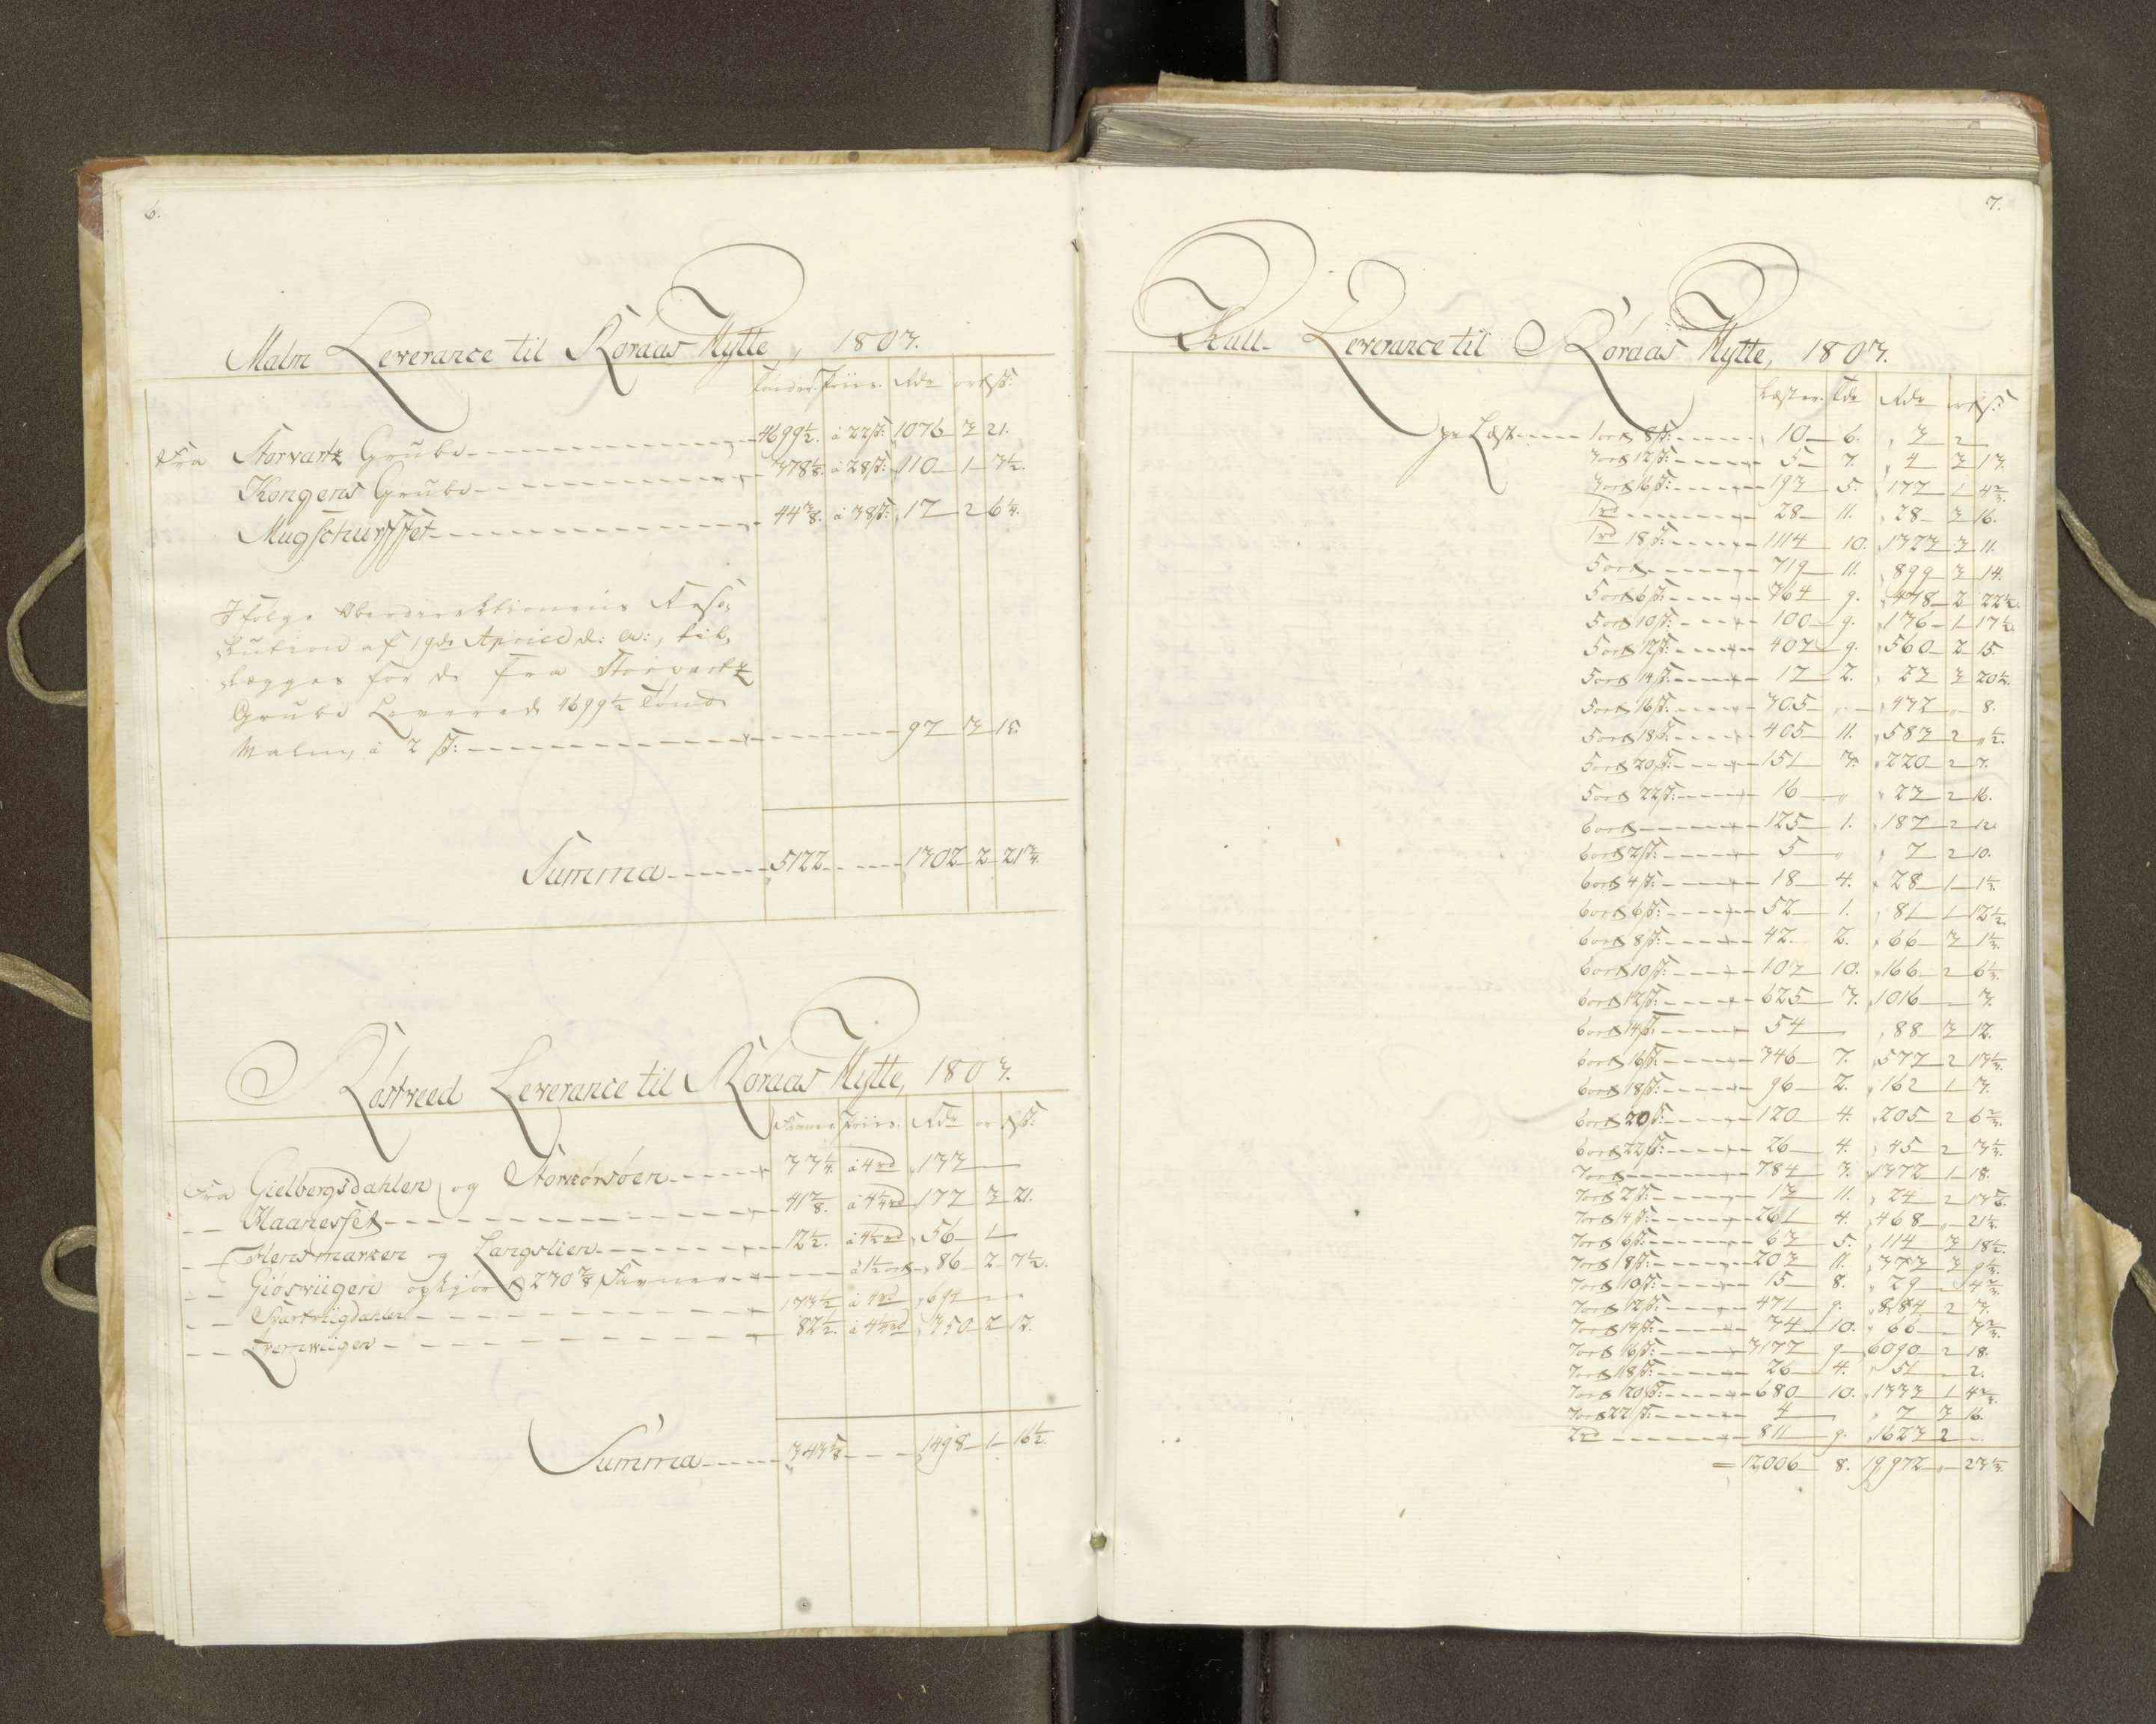 6.
Malm Leverance til Röraas Hytte, 1803.
Tönder. Priis. Rdr ort ß:
Fra Storvartz Grube 4699½. à 22ß: 1076 3 21.
Kongens Grube 378⅛. à 28ß: 110 1 3½.
Mugschurfset 44⅜. à 38ß: 17 2 6¼.
Ifölge Oberdirektionens Reso-
lution af 19de April d: A:, til-
lægges for de fra Storvartz
Grube Leverede 4699½ Tönde
Malm, à 2 ß: 97 3 15.
Summa 5122 1302 2 21¾.
Röstveed Leverance til Röraas Hytte, 1803.
Favner Priis. Rdr ort ß:
Fra Gielbergsdahlen og Storkörsöen 33¼. à 4rd 133
Haanesset 41⅞. à 4¼rd 177 3 21.
Hensmarken og Langslien 12½. à 4½rd 56 1
Giösviigen opkjör 230⅞ Favner à 1½ort 86 2 7½.
Svartviigdahlen 173½ à 4rd 694
Lremviigen 82½. à 4¼rd 350 2 12.
Summa 343⅝ 1498 1 16½.
7.
Kull Leverance til Röraas Hytte, 1803.
Læster. Tdr Rdr ort ß:
pr Læst 1ort 8ß: 10 6. 3 2
3ort 12ß: 5 7. 4 3 13.
3ort 16ß: 193 5. 177 1 4⅔.
1rd 28 11. 28 3 16.
1rd 18ß: 1114 10. 1323 3 11.
5ort 719 11. 899 3 14.
5ort 6ß: 364 9. 478 2 22½.
5ort 10ß: 100 9. 136 1 17½.
5ort 12ß: 407 9. 560 2 15.
5ort 14ß: 17 2. 23 3 20⅓.
5ort 16ß: 305 432 8.
5ort 18ß: 405 11. 583 2 ½.
5ort 20ß: 151 3. 220 2 7.
5ort 22ß: 16 23 2 16.
6ort 125 1. 187 2 12.
6ort 2ß: 5 7 2 10.
6ort 4ß: 18 4. 28 1 1⅓.
6ort 6ß: 52 1. 81 1 12½.
6ort 8ß: 42. 2. 66 3 1⅓.
6ort 10ß: 107 10. 166 2 6⅓.
6ort 12ß: 625 3. 1016 3.
6ort 14ß: 54 88 3 12.
6ort 16ß: 346 7. 577 2 13⅓.
6ort 18ß: 96 2. 162 1 3.
6ort 20ß: 120 4. 205 2 6⅔.
6ort 22ß: 26 4. 45 2 3⅓.
7ort 784 3. 1372 1 18.
7ort 2ß: 13 11. 24 2 13⅚.
7ort 4ß: 261 4. 468 21⅓.
7ort 6ß: 63 5. 114 3 18½.
7ort 8ß: 203 11. 373 3 9⅓.
7ort 10ß: 15 8. 29 4⅔.
7ort 12ß: 471 9. 884 2 3.
7ort 14ß: 34 10. 66 3⅔.
7ort 16ß: 3177 9 6090 2 18.
7ort 18ß: 26 4. 51 2.
7ort 20ß: 680 10. 1333 1 4⅔.
7ort 22ß: 4 7 3 16.
2rd 811 9. 1623 2
12,006 8. 19,972 23⅓.